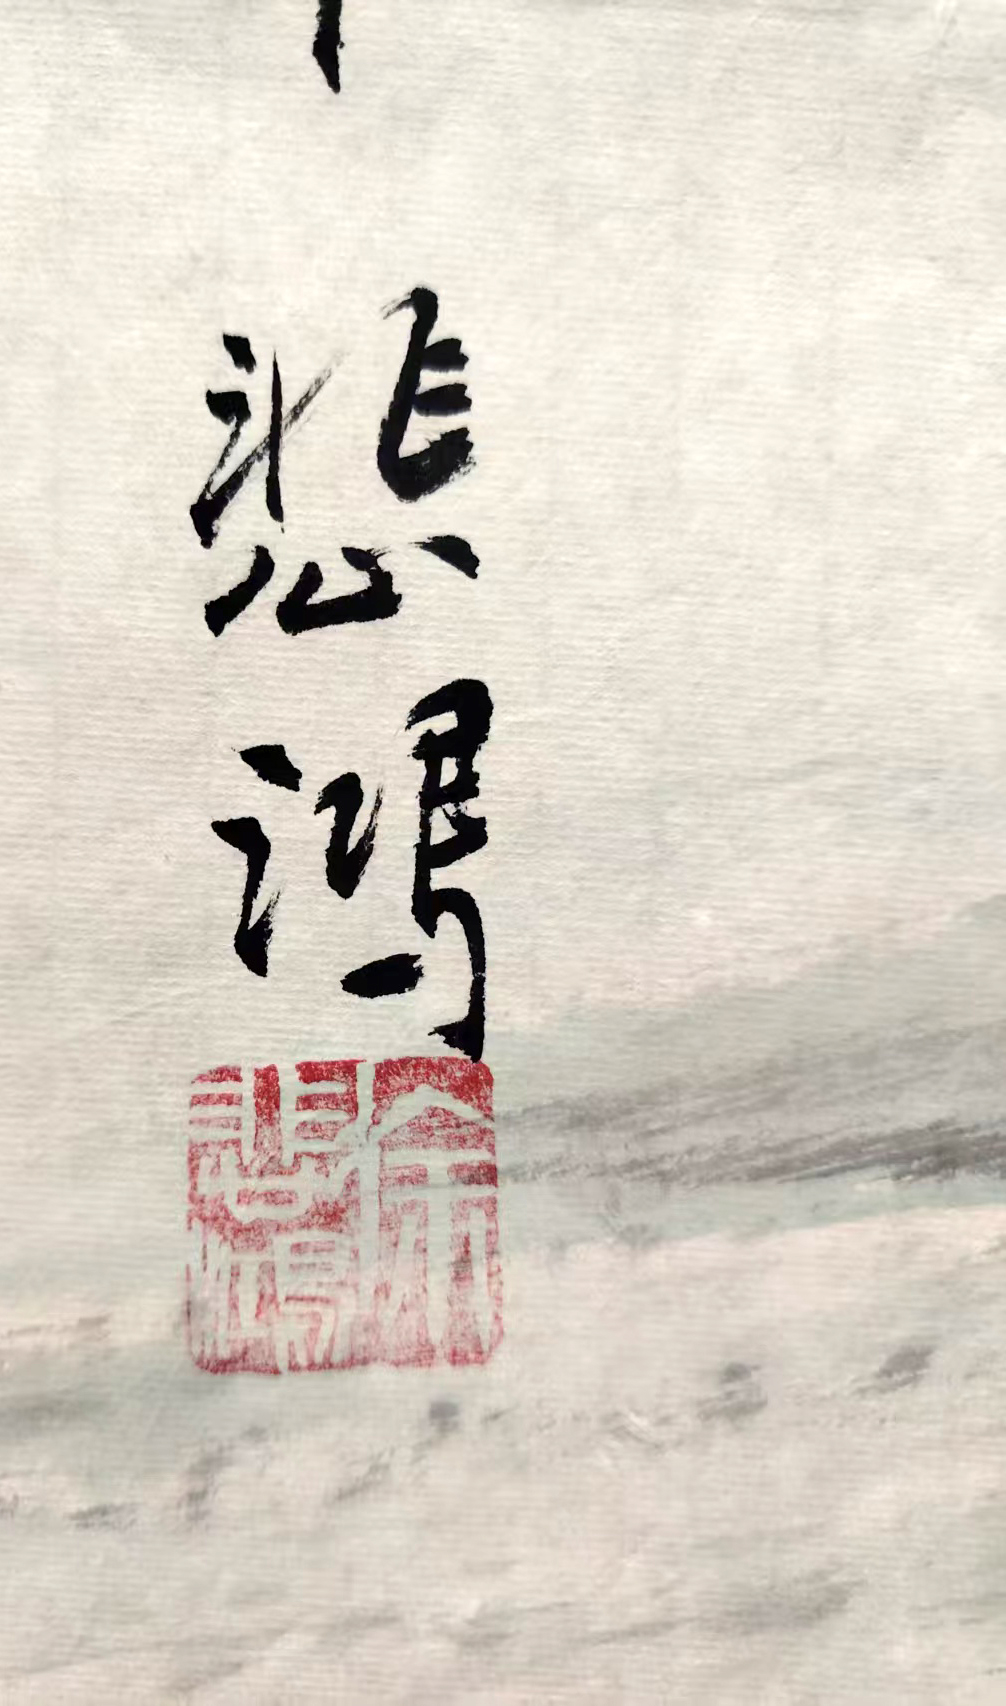 悲鸿
徐悲鴻